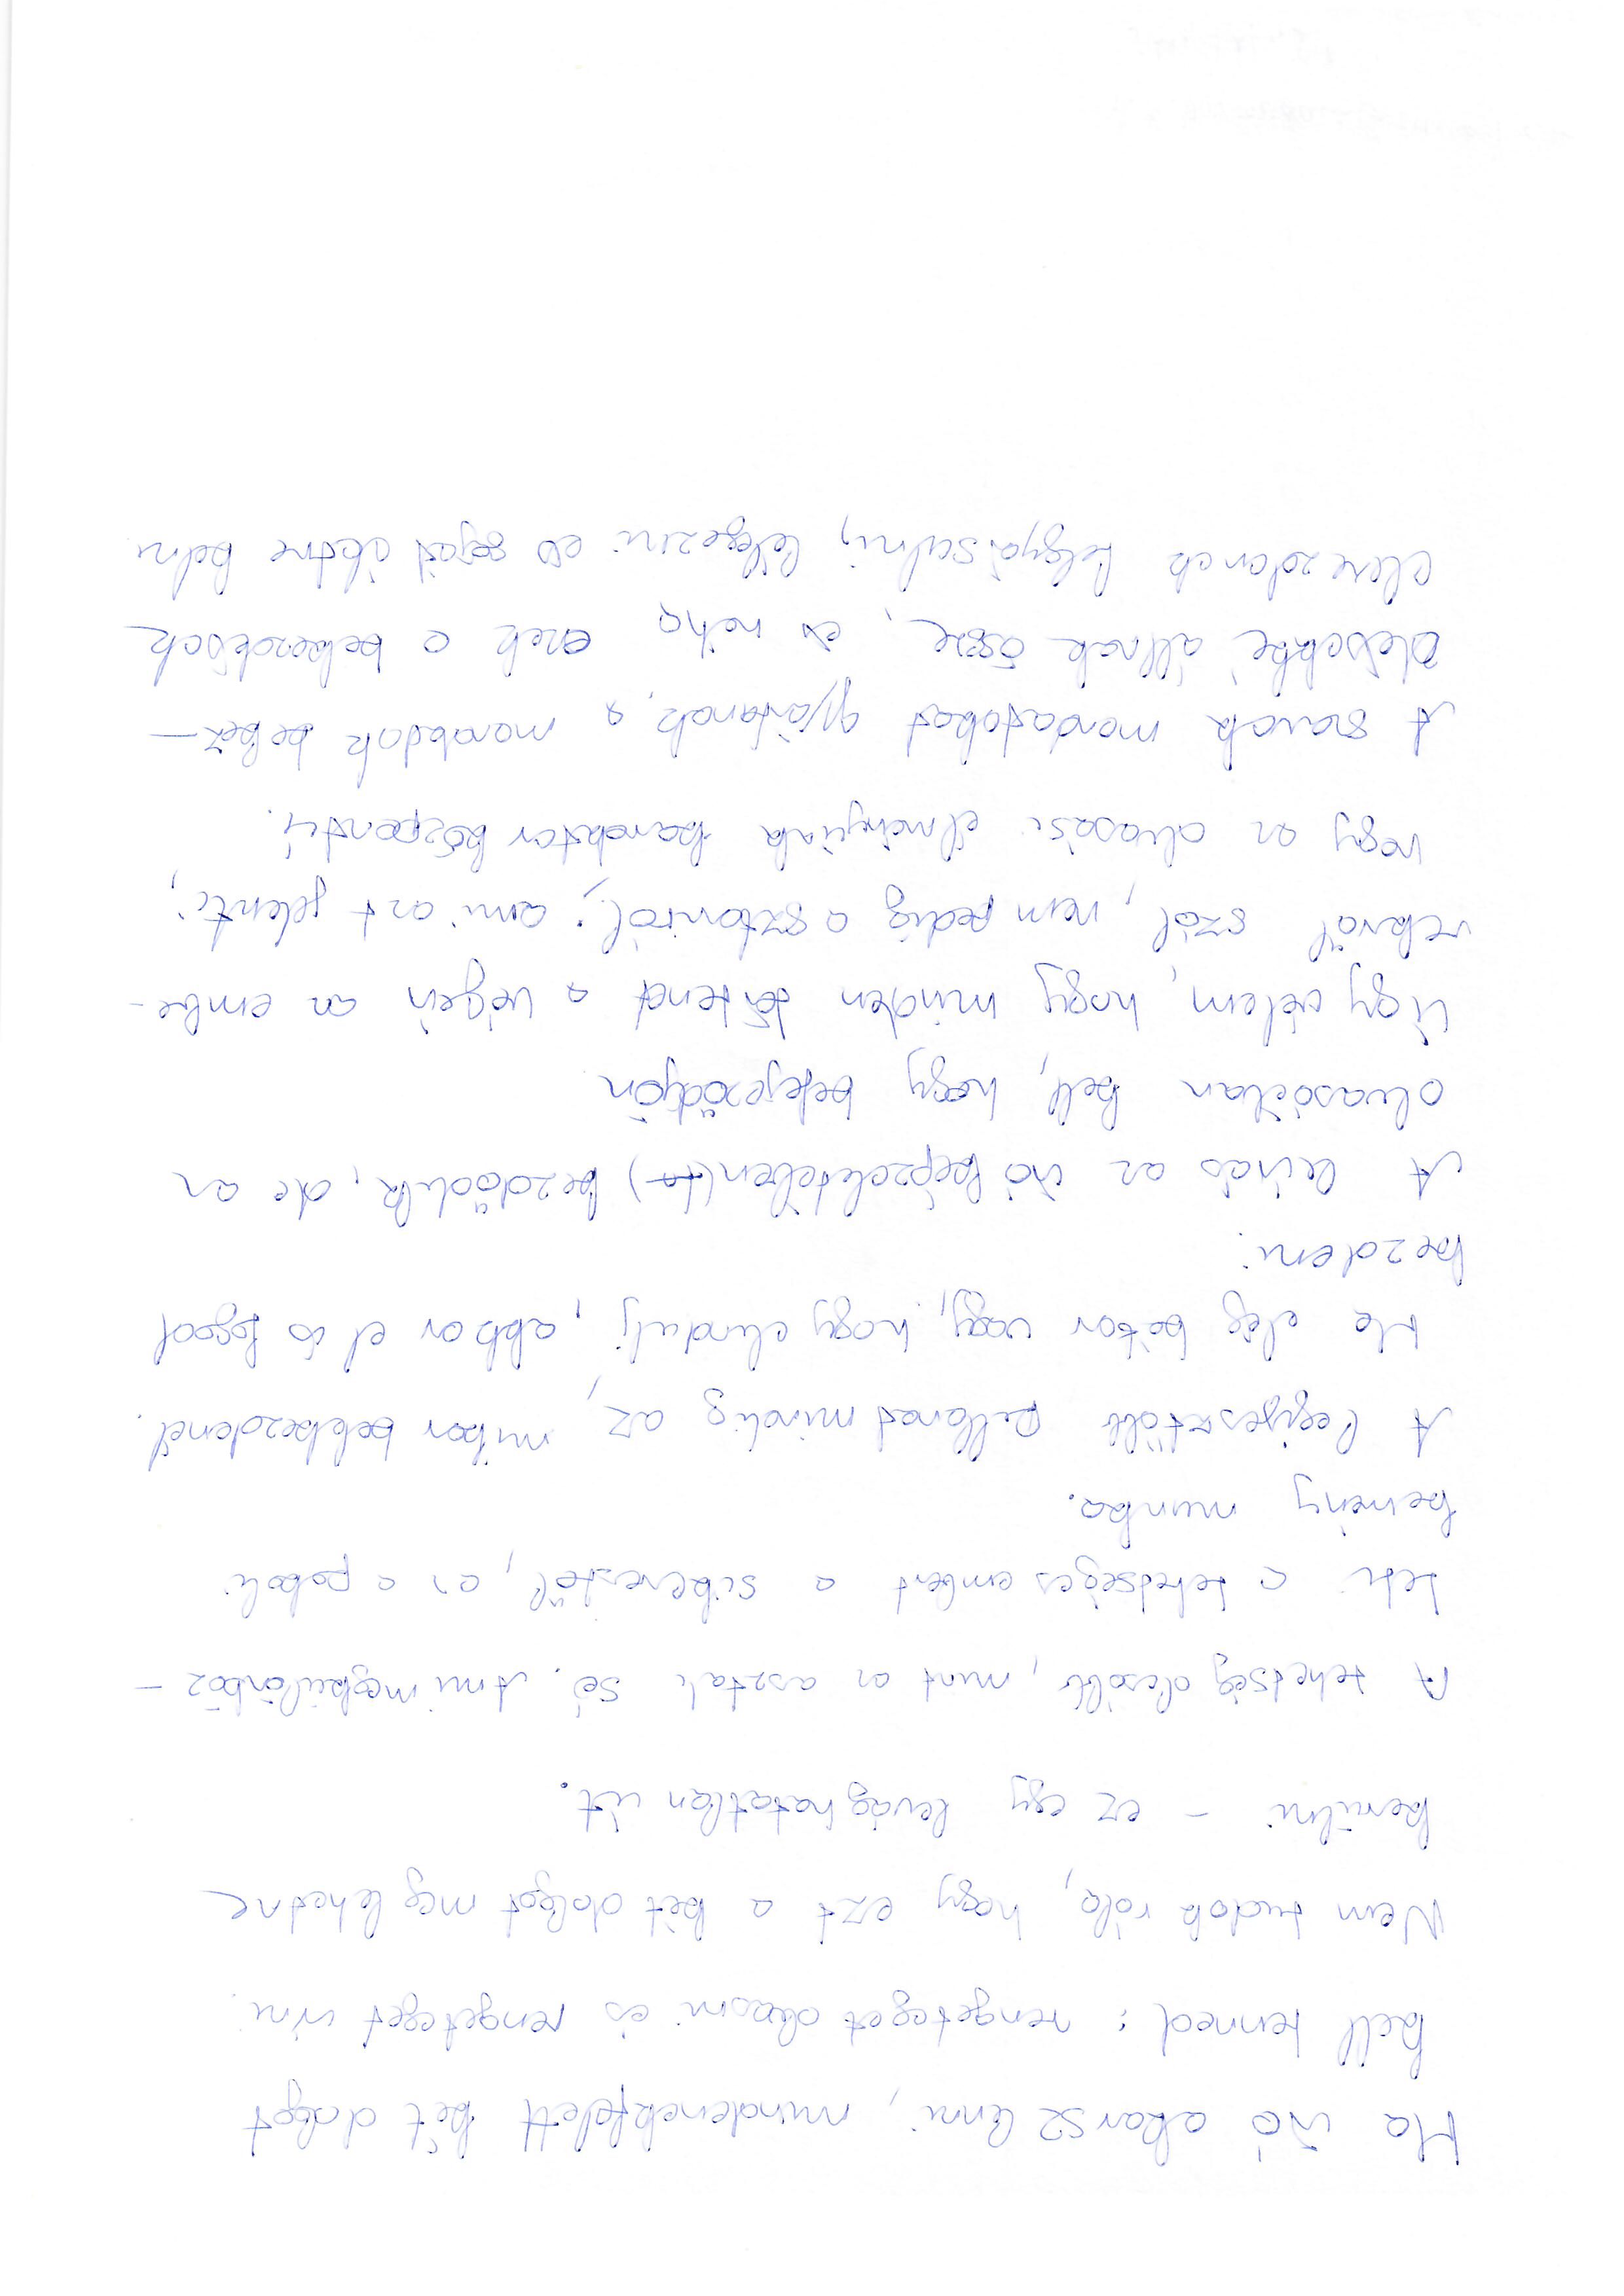 Ha író akarsz lenni, mindenekfelett két dolgot
kell tenned: rengeteget olvasni és rengeteget írni.
Nem tudok róla, hogy ezt a két dolgot meg lehetne
kerülni – ez egy levághatatlan út.
A tehetség olcsóbb, mint az asztali só. Ami megkülönböz-
teti a tehetséges embert a sikerestől, az a pokoli
kemény munka.
A legijesztőbb pillanat mindig az, mikor belekezdenél.
Ha elég bátor vagy, hogy elindulj, akkor el is fogod
kezdeni.
A leírás az író képzeletében(ta) kezdődik, de az
olvasóéban kell, hogy befejeződjön
Úgy vélem, hogy minden történet a végén az embe-
rekről szól, nem pedig a sztoriról; ami azt jelenti,
hogy az olvasási élményünk karakter központú.
A szavak mondatokat gyártanak, a mondatok bekez-
désekké állnak össze, és néha ezek a bekezdések
elkezdenek felgyorsulni, lélegezni és saját életre kelni